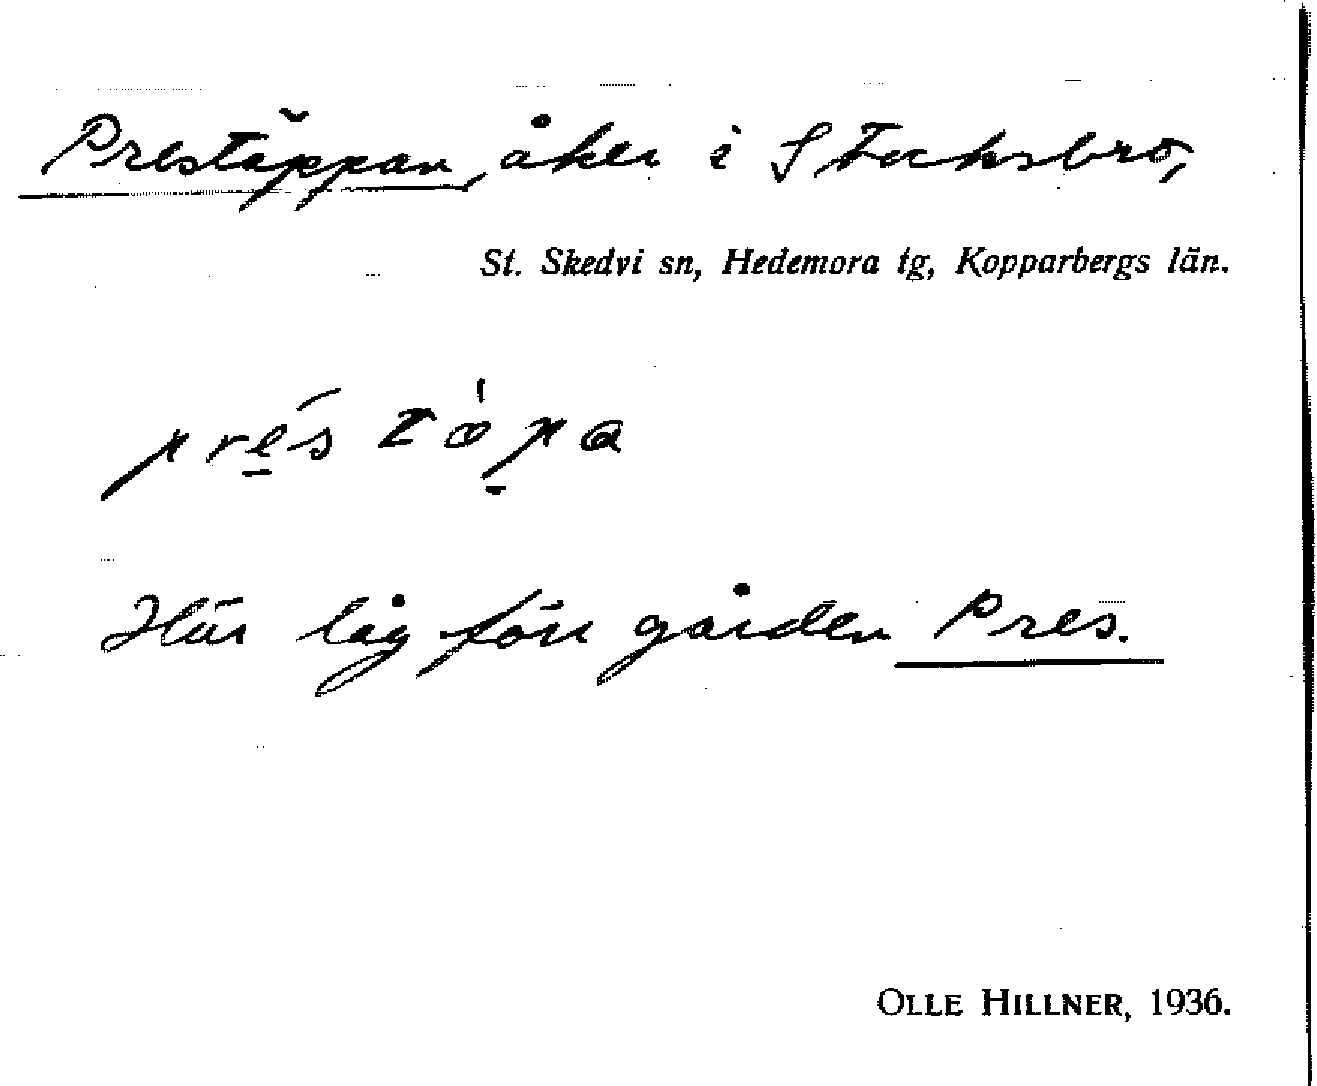 Prestäppan, åker i Stocksbro,
St. Skedvi sn, Hedemora tg, Kopparbergs län.
Här låg förr gården Pres.
OLLE HILLNER, 1936.